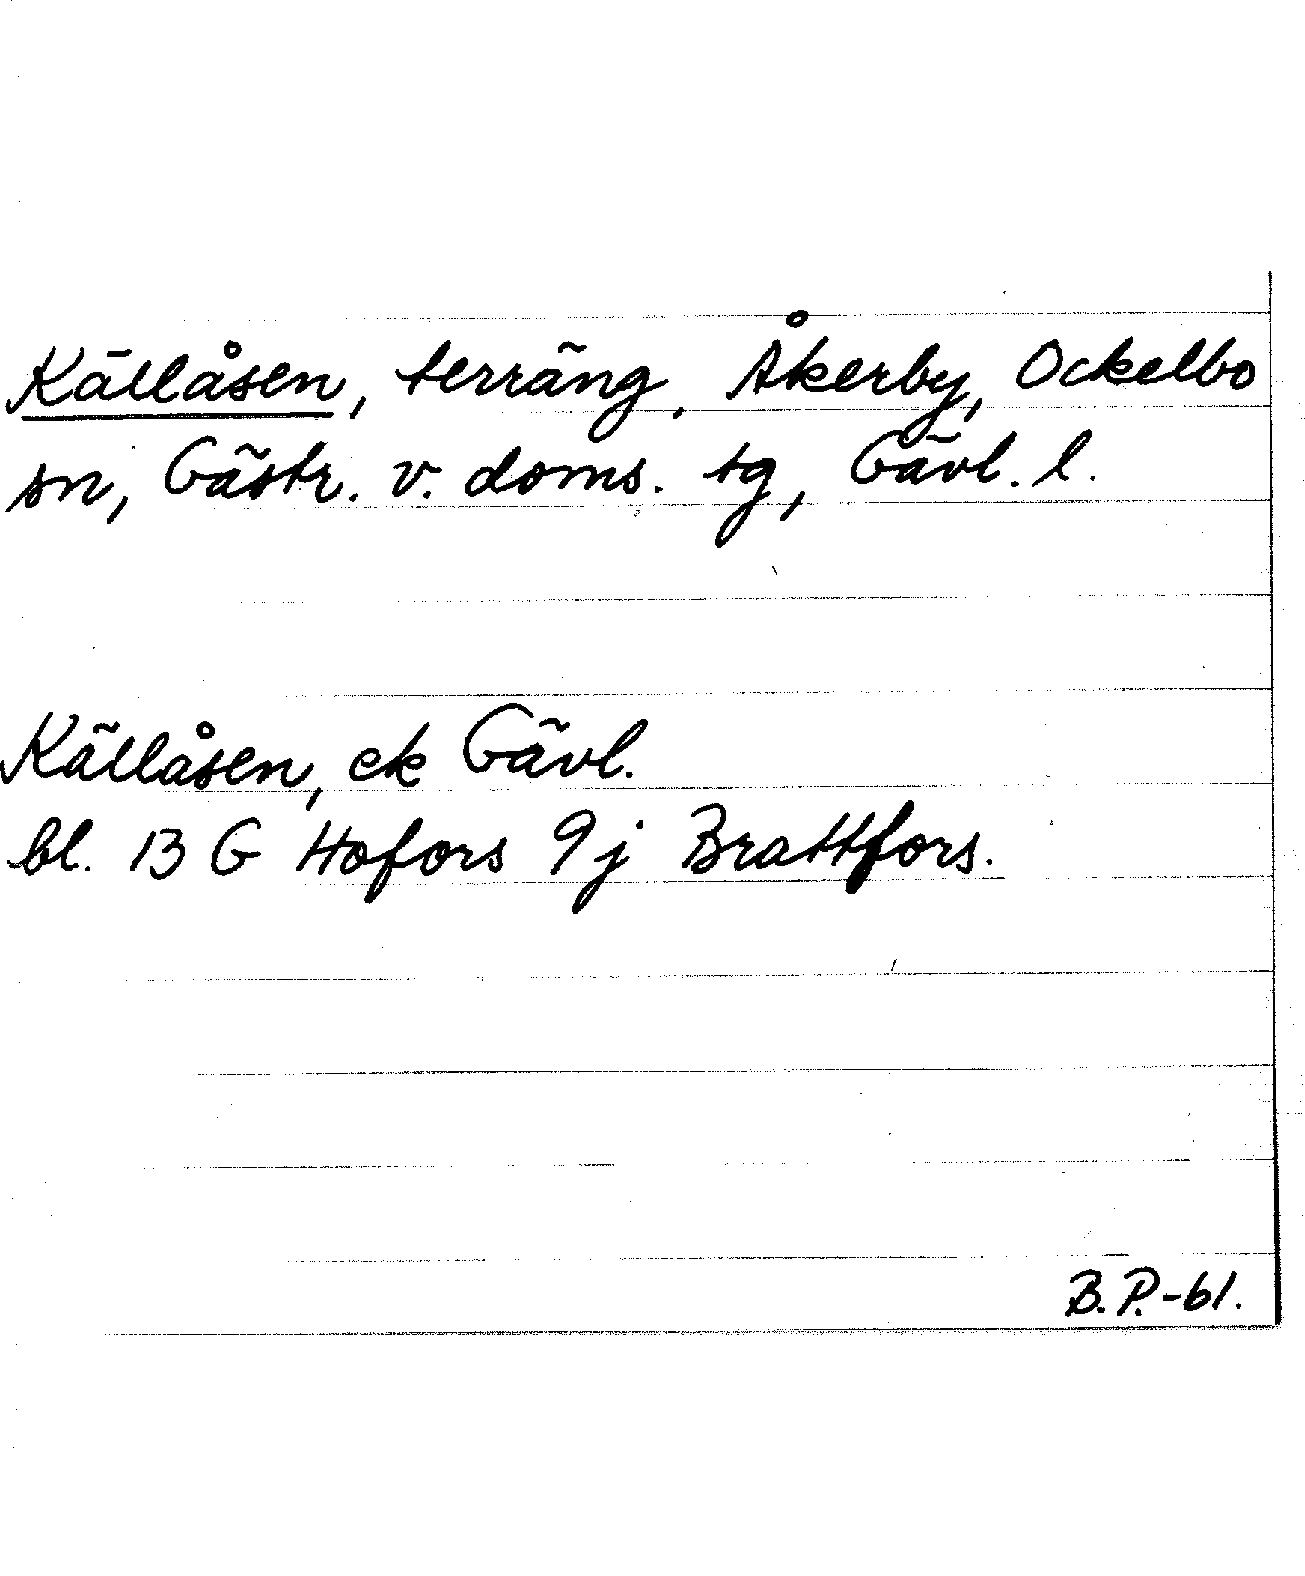 Källåsen, terräng, Åkerby, Ockelbo
sn, Gästr. v. doms. tg, Gävl. l.
Källåsen, ek Gävl.
bl. 13 G Hofors 9j Brattfors.
B.P.-61.